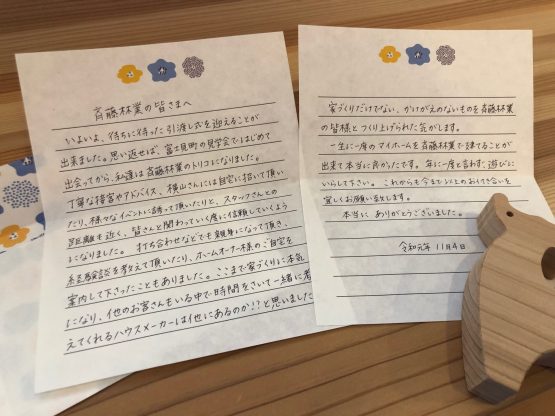 斉藤林業の皆さまへ
いよいよ、待ちに待った 引渡し式を迎えることが
出来ました。思い返せば、富士見町の見学会ではじめて
出会ってから、私達は斉藤林業のトリコになりました。
丁寧な接客やアドバイス、横山さんには自宅に招いて頂い
たり、様々なイベントに誘って頂いたりと、スタッフさんとの
距離も近く、皆さんと関わっていく度に信頼していくよう
になりました。 打ち合わせなどでも親身になって頂き、
経験談を教えて頂いたり、ホームオーナー様のご自宅を
案内して下さったこともありました。ここまで家づくりに本気
になり、他のお客さんもいる中で時間をさいて一緒に考
えてくれるハウスメーカーは他にあるのか!?と思いました
家づくりだけでない、かけがえのないものを斉藤林業
の皆様とつくり上げられた気がします。
一生に一度のマイホームを斉藤林業で建てることが
出来て本当に良かったです。年に一度と言わず、遊びに
いらして下さい。これからも今まで以上のお付き合いを
宜しくお願い致します。
本当に ありがとうございました。
令和元年 11月4日